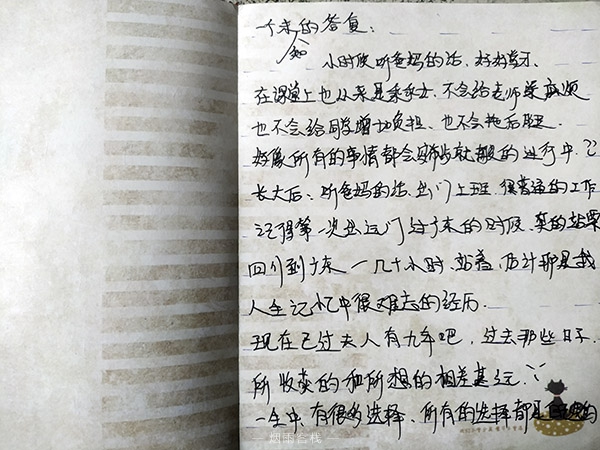 一个未知的答复：
小时候听爸妈的话，好好学习、
在课堂上也从来是乖乖女、不会给老师添麻烦
也不会给同学增加负担、也不会拖后腿.
好像所有的事情都会按部就班的进行中.
长大后：听爸妈的话，出门上班，很普通的工作
记得第一次出远门过广东的时候，买的站票
四川到广东一几十小时，站着，估计那是我
人生记忆中很难忘的经历.
现在已过去人有九年吧，过去那些日子.
所收获的和所想的相差甚远.
一生中、有很多选择、所有的选择都是
烟雨客栈